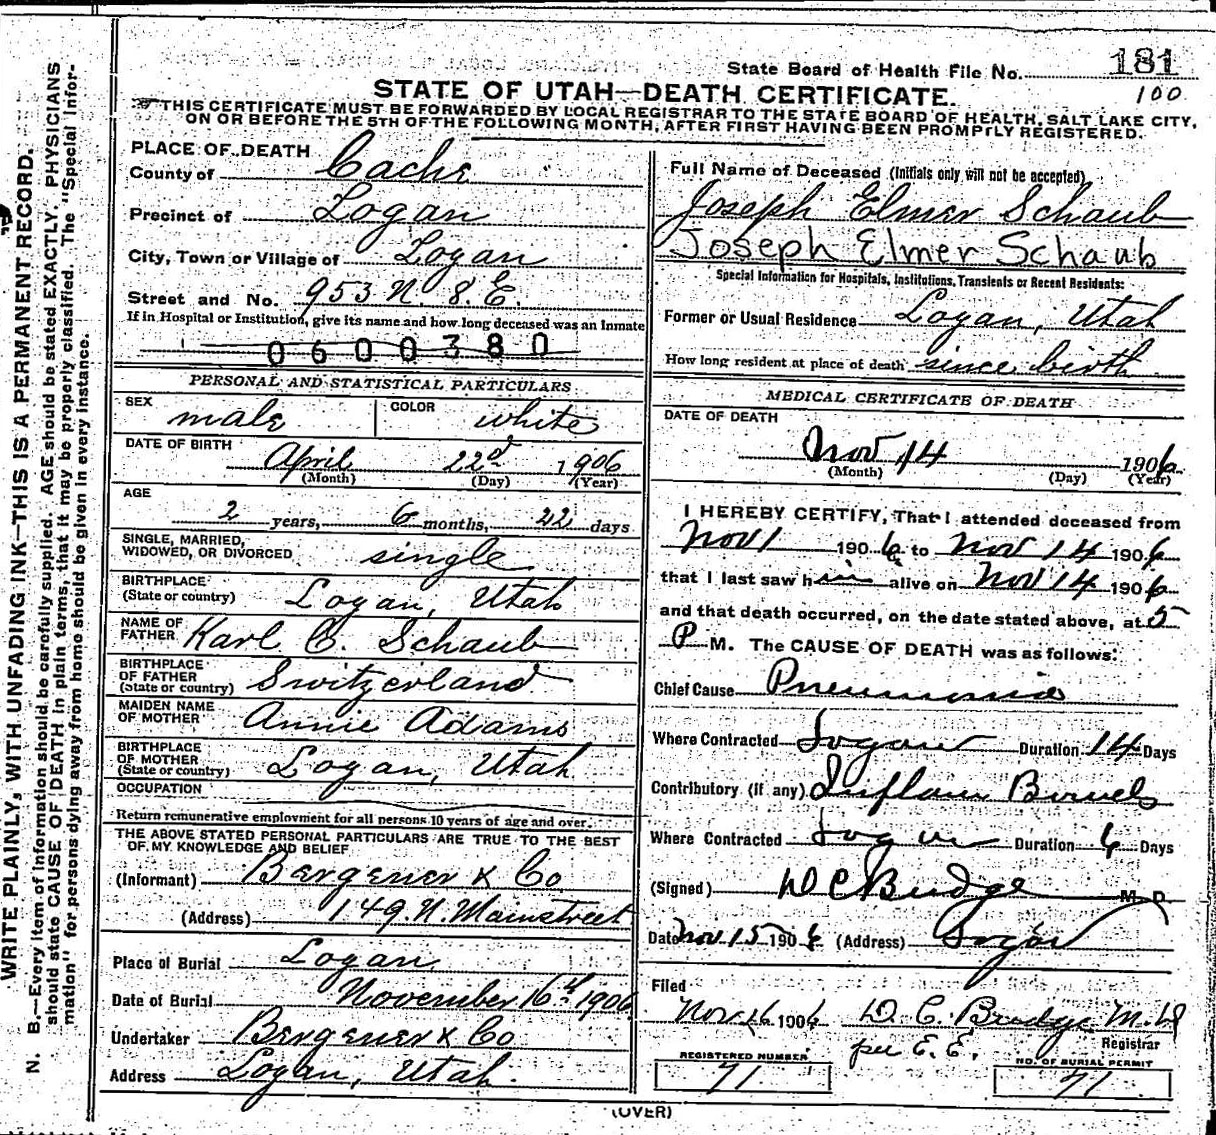 State Board of Health File No. 181
100
STATE OF UTAH—DEATH CERTIFICATE.
THIS CERTIFICATE MUST BE FORWARDED BY LOCAL REGISTRAR TO THE STATE BOARD OF HEALTH, SALT LAKE CITY,
ON OR BEFORE THE 5TH OF THE FOLLOWING MONTH, AFTER FIRST HAVING BEEN PROMPTLY REGISTERED.
WRITE PLAINLY, WITH UNFADING INK—THIS IS A PERMANENT RECORD.
N. B.—Every item of information should be carefully supplied. AGE should be stated EXACTLY. PHYSICIANS
should state CAUSE OF DEATH in plain terms, that it may be properly classified. The "Special Infor-
mation" for persons dying away from home should be given in every instance.
PLACE OF DEATH
County of Cache
Precinct of Logan
City, Town or Village of Logan
Street and No. 953 N. 8. E.
If in Hospital or Institution, give its name and how long deceased was an Inmate
0600380
PERSONAL AND STATISTICAL PARTICULARS
SEX male COLOR white
DATE OF BIRTH April 22d 1906
(Month) (Day) (Year)
AGE
2 years, 6 months, 22 days
SINGLE, MARRIED,
WIDOWED, OR DIVORCED single
BIRTHPLACE
(State or country) Logan, Utah
NAME OF
FATHER Karl C. Schaub
BIRTHPLACE
OF FATHER
(State or country) Switzerland
MAIDEN NAME
OF MOTHER Annie Adams
BIRTHPLACE
OF MOTHER
(State or country) Logan, Utah
OCCUPATION
Return remunerative employment for all persons 10 years of age and over.
THE ABOVE STATED PERSONAL PARTICULARS ARE TRUE TO THE BEST
OF MY KNOWLEDGE AND BELIEF
(Informant) Bergener & Co
(Address) 149 N. Mainstreet
Place of Burial Logan
Date of Burial November 16th 1906
Undertaker Bergener & Co
Address Logan, Utah.
Full Name of Deceased (Initials only will not be accepted)
Joseph Elmer Schaub
Joseph Elmer Schaub
Special Information for Hospitals, Institutions, Transients or Recent Residents:
Former or Usual Residence Logan, Utah
How long resident at place of death since birth
MEDICAL CERTIFICATE OF DEATH
DATE OF DEATH
Nov 14 1906
(Month) (Day) (Year)
I HEREBY CERTIFY, That I attended deceased from
Nov 1 1906 to Nov 14 1906
that I last saw him alive on Nov 14 1906
and that death occurred, on the date stated above, at 5
P M. The CAUSE OF DEATH was as follows:
Chief Cause Pneumonia
Where Contracted Logan Duration 14 Days
Contributory (if any) Inflam Bowels
Where Contracted Logan Duration 6 Days
(Signed) D C Budge M. D.
Date Nov 15 1906 (Address) Logan
Filed
Nov 16 1906 D. C. Budge M. D
per E. E. Registrar
REGISTERED NUMBER
71
NO. OF BURIAL PERMIT
71
(OVER)